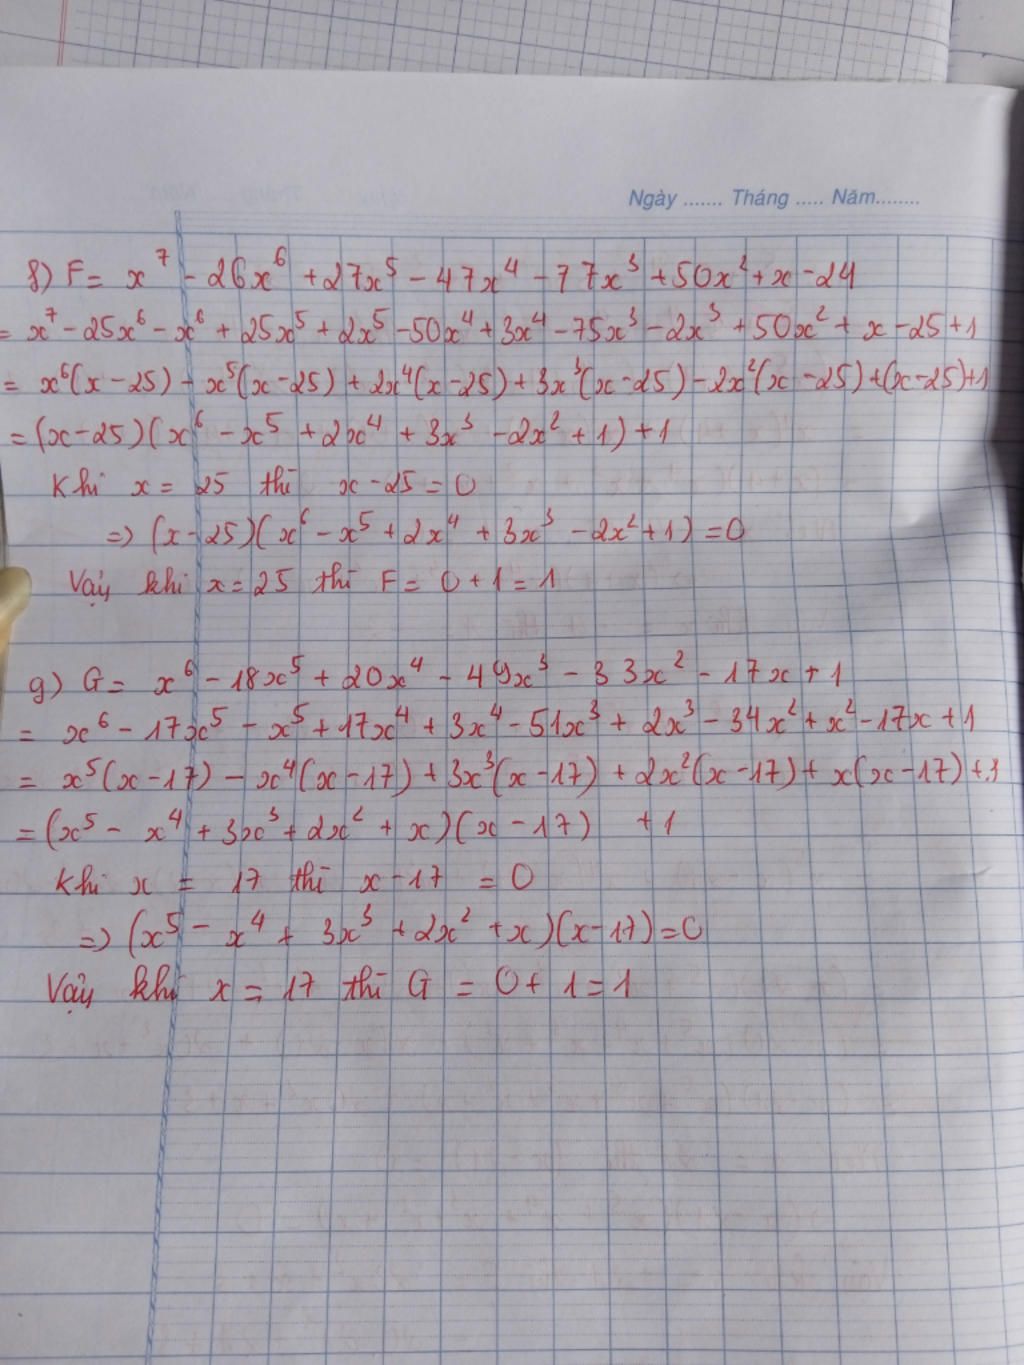 Ngày ....... Tháng ..... Năm........
f) F = x⁷ - 26x⁶ + 27x⁵ - 47x⁴ - 77x³ + 50x² + x - 24
= x⁷ - 25x⁶ - x⁶ + 25x⁵ + 2x⁵ - 50x⁴ + 3x⁴ - 75x³ - 2x³ + 50x² + x - 25 + 1
= x⁶(x - 25) - x⁵(x - 25) + 2x⁴(x - 25) + 3x³(x - 25) - 2x²(x - 25) + (x - 25) + 1
= (x - 25)(x⁶ - x⁵ + 2x⁴ + 3x³ - 2x² + 1) + 1
Khi x = 25 thì x - 25 = 0
=> (x - 25)(x⁶ - x⁵ + 2x⁴ + 3x³ - 2x² + 1) = 0
Vậy khi x = 25 thì F = 0 + 1 = 1
g) G = x⁶ - 18x⁵ + 20x⁴ - 49x³ - 33x² - 17x + 1
= x⁶ - 17x⁵ - x⁵ + 17x⁴ + 3x⁴ - 51x³ + 2x³ - 34x² + x² - 17x + 1
= x⁵(x - 17) - x⁴(x - 17) + 3x³(x - 17) + 2x²(x - 17) + x(x - 17) + 1
= (x⁵ - x⁴ + 3x³ + 2x² + x)(x - 17) + 1
Khi x = 17 thì x - 17 = 0
=> (x⁵ - x⁴ + 3x³ + 2x² + x)(x - 17) = 0
Vậy khi x = 17 thì G = 0 + 1 = 1